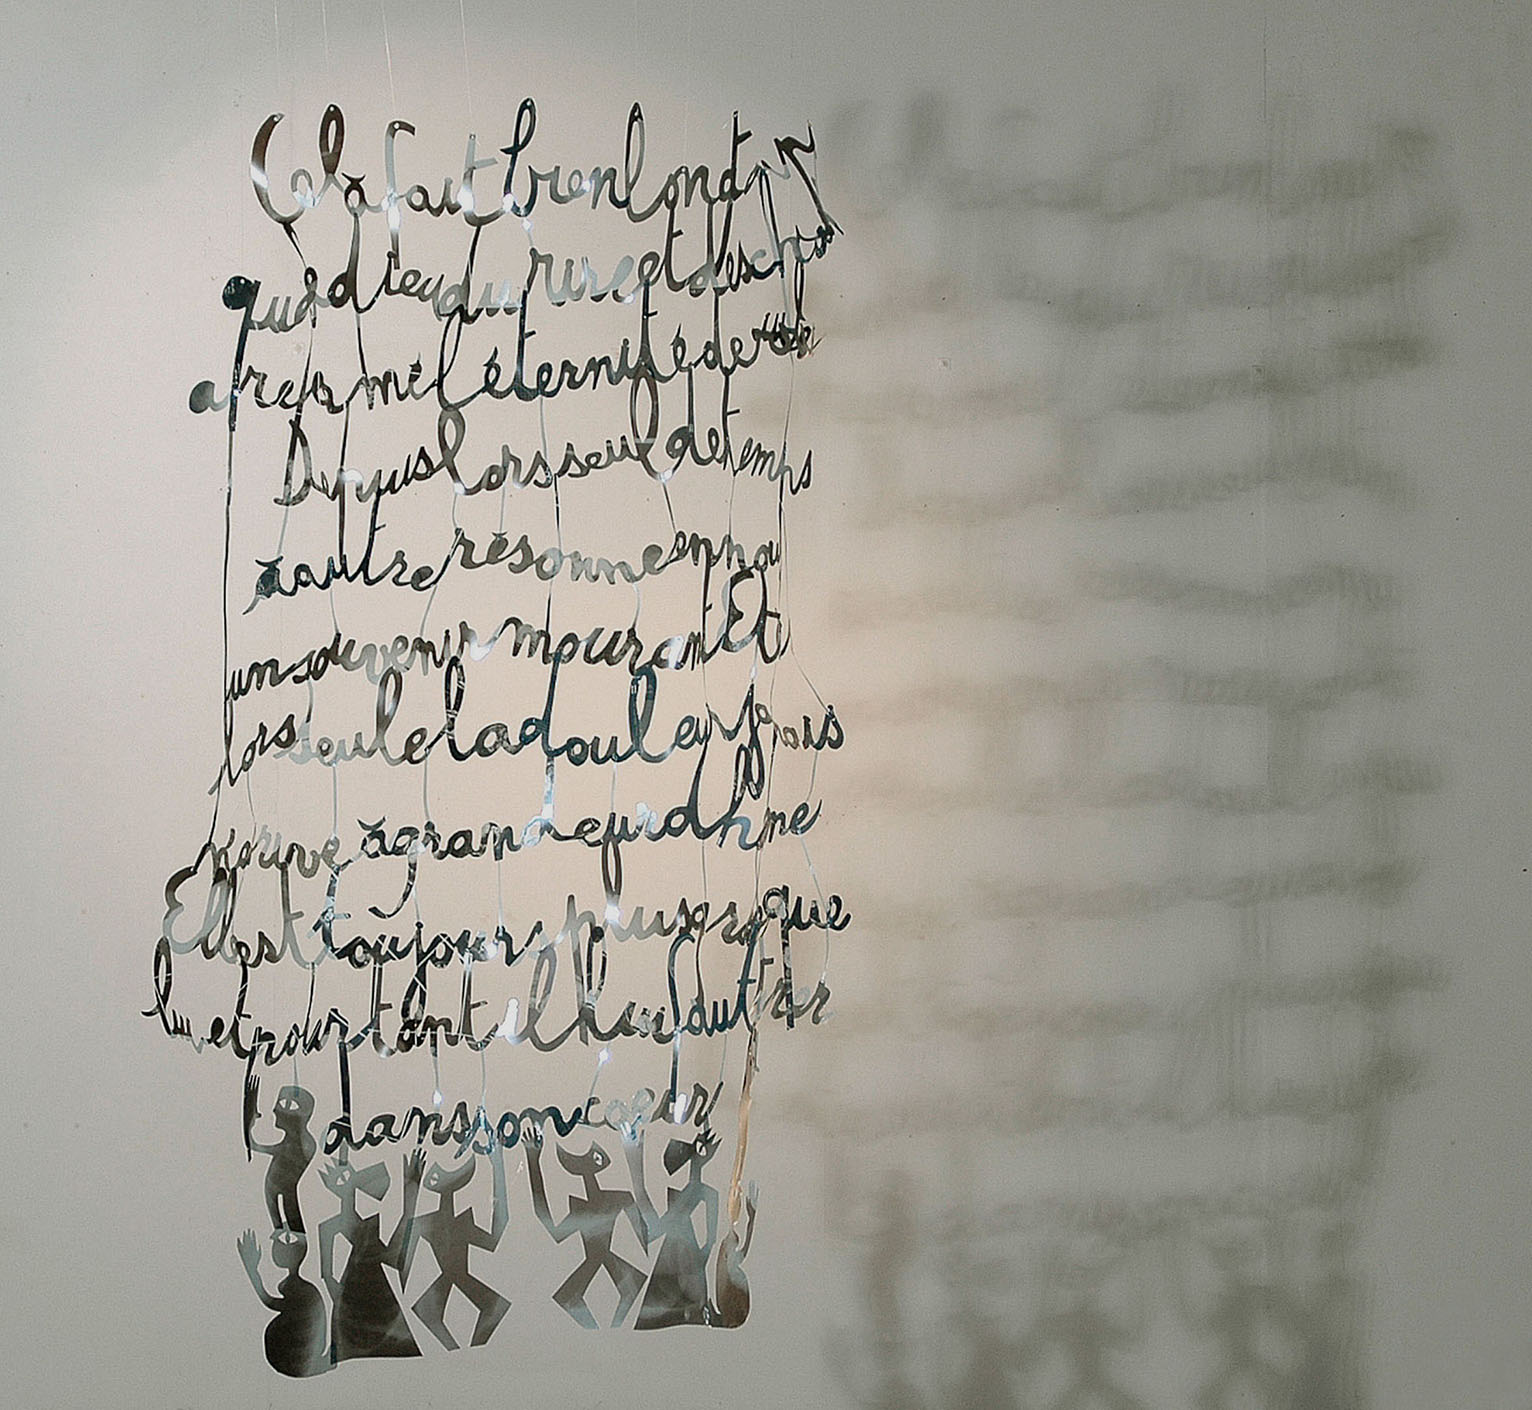 Cela fait bien longt
que dieu du rire et des ch
apréamé l éternité de
Depuis lors seul de temps
à autre résonne en nou
un souvenir mourant Et
lors seule la douleur
à grandeur d h me
Elle est toujours plus que
lui et pourtant il lui faut
dans son coeur